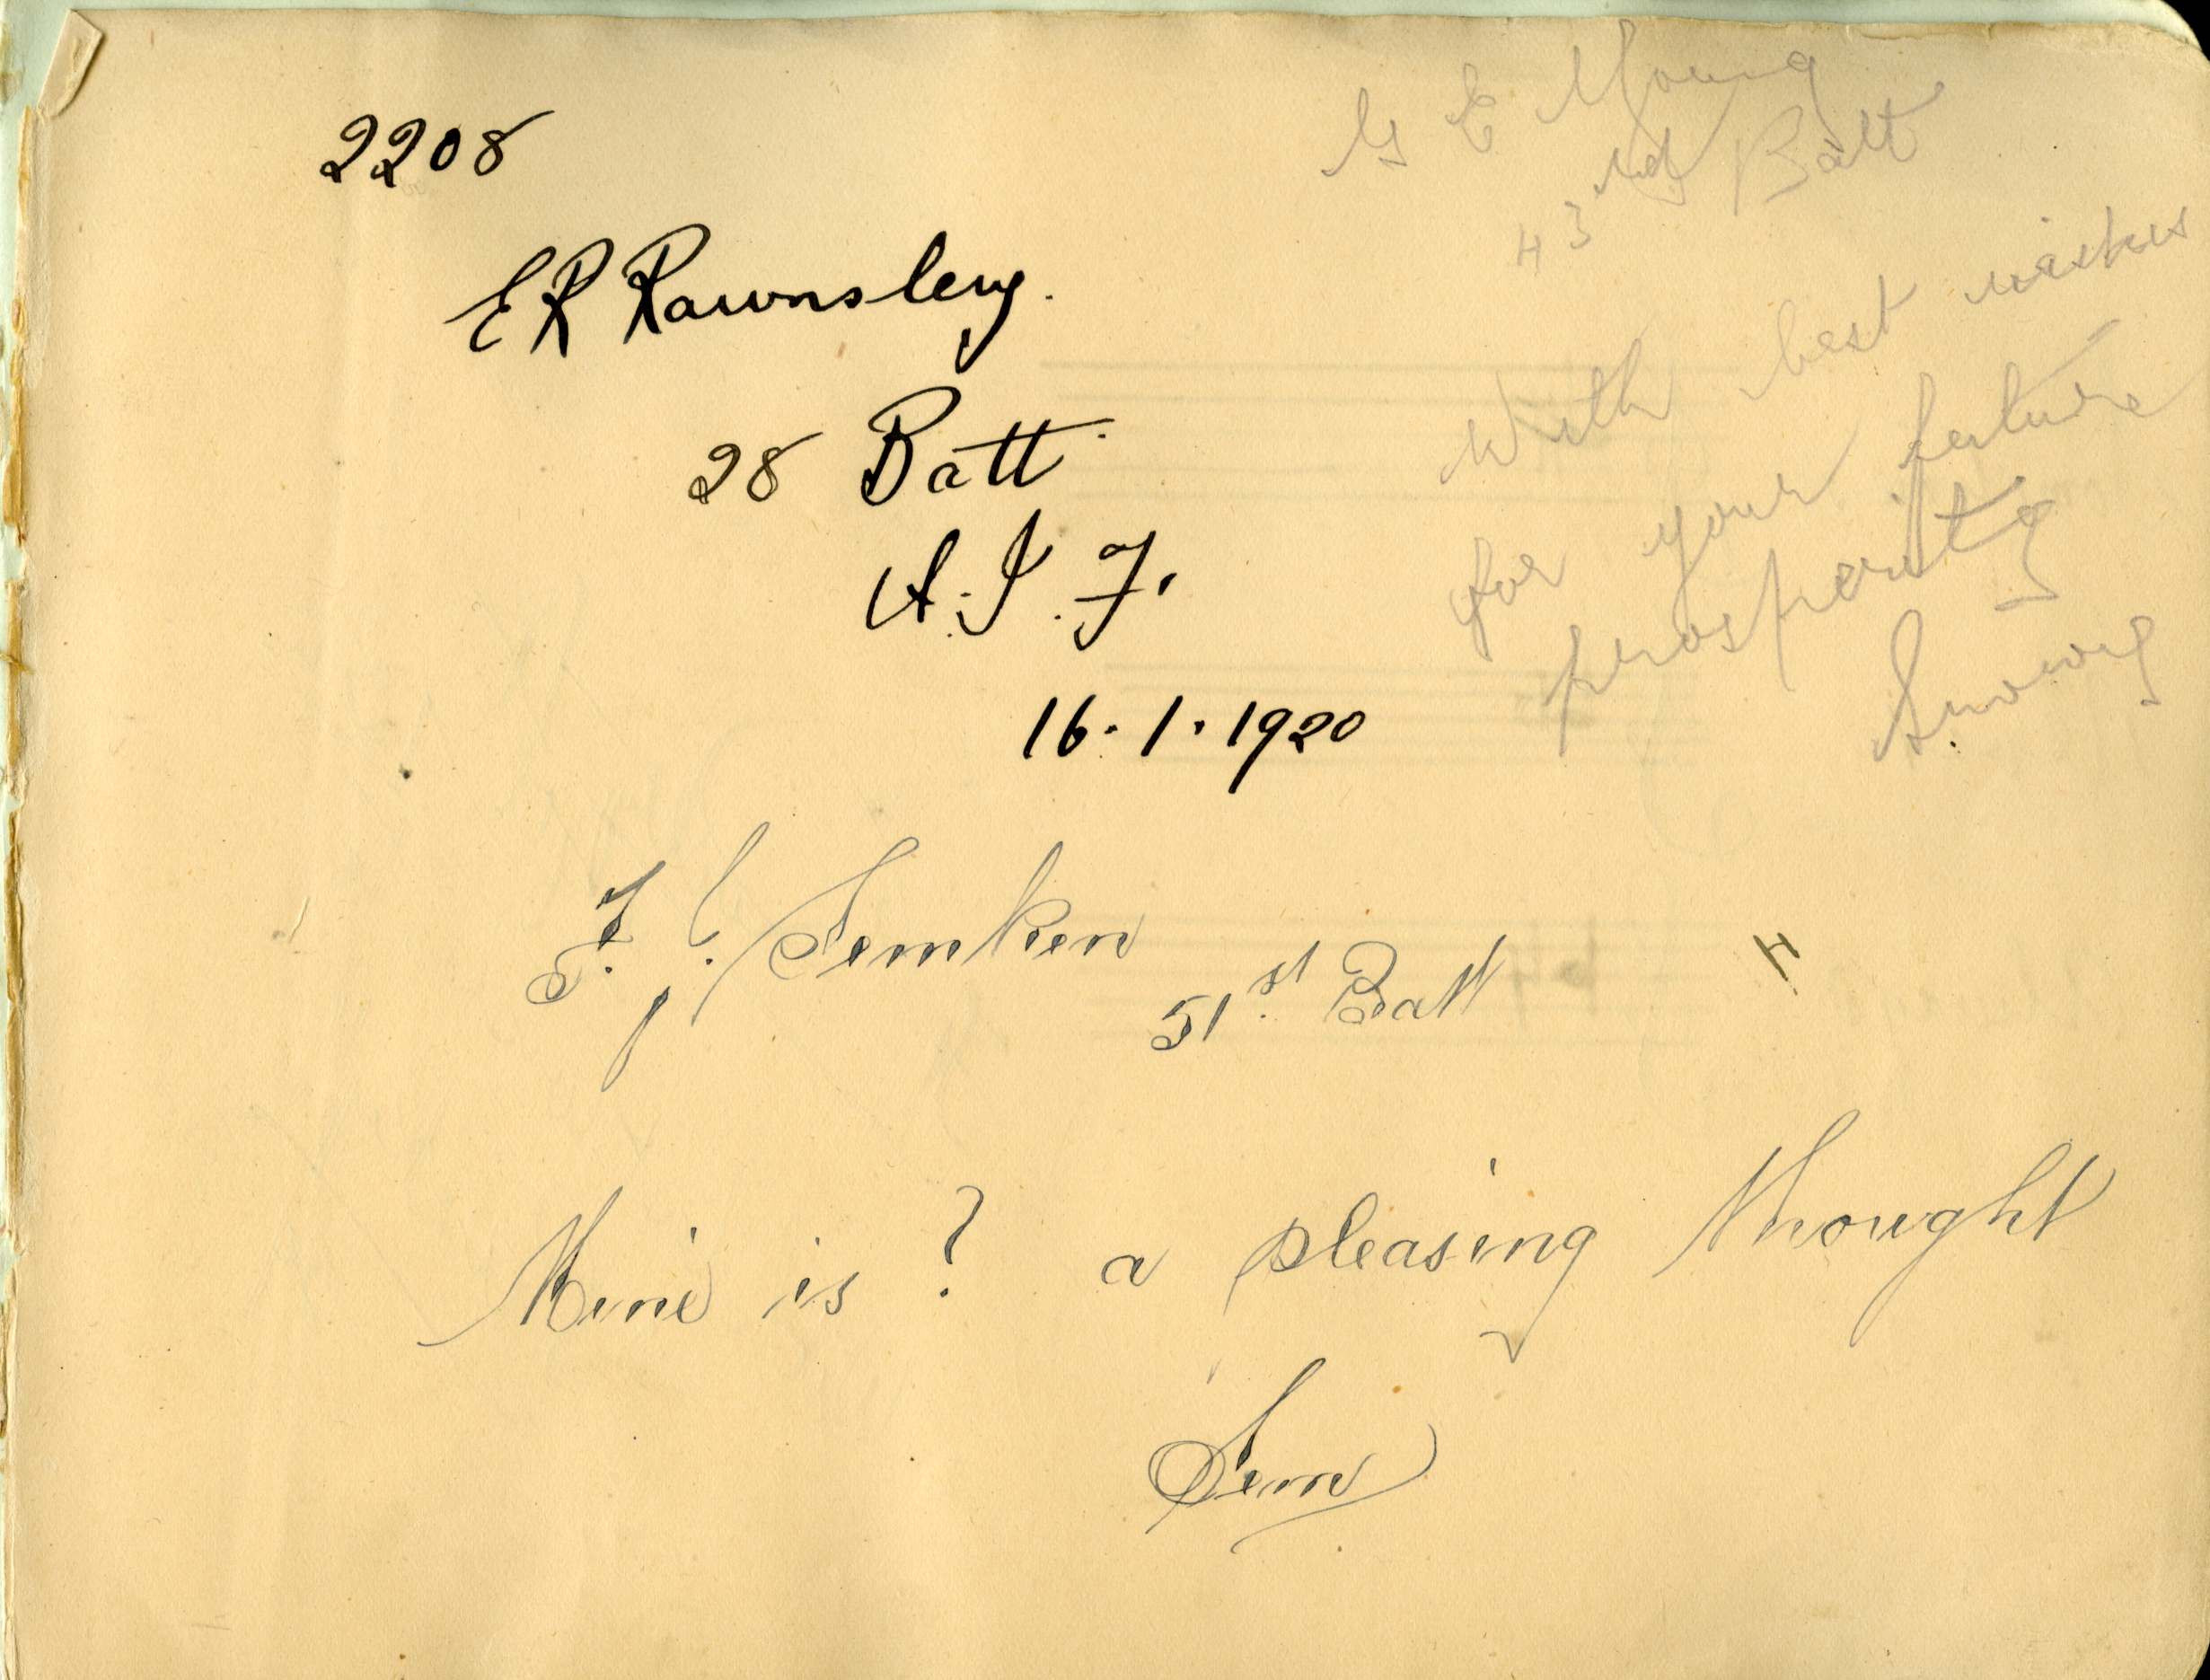 2208
E R Rawnsley.
28 Batt.
A. I. F.
16.1.1920
G E Young
43rd Batt
With best wishes
for your future
prosperity
Snowy
F. J. Semken
51st Batt
H
Mine is ? a pleasing thought
Sem